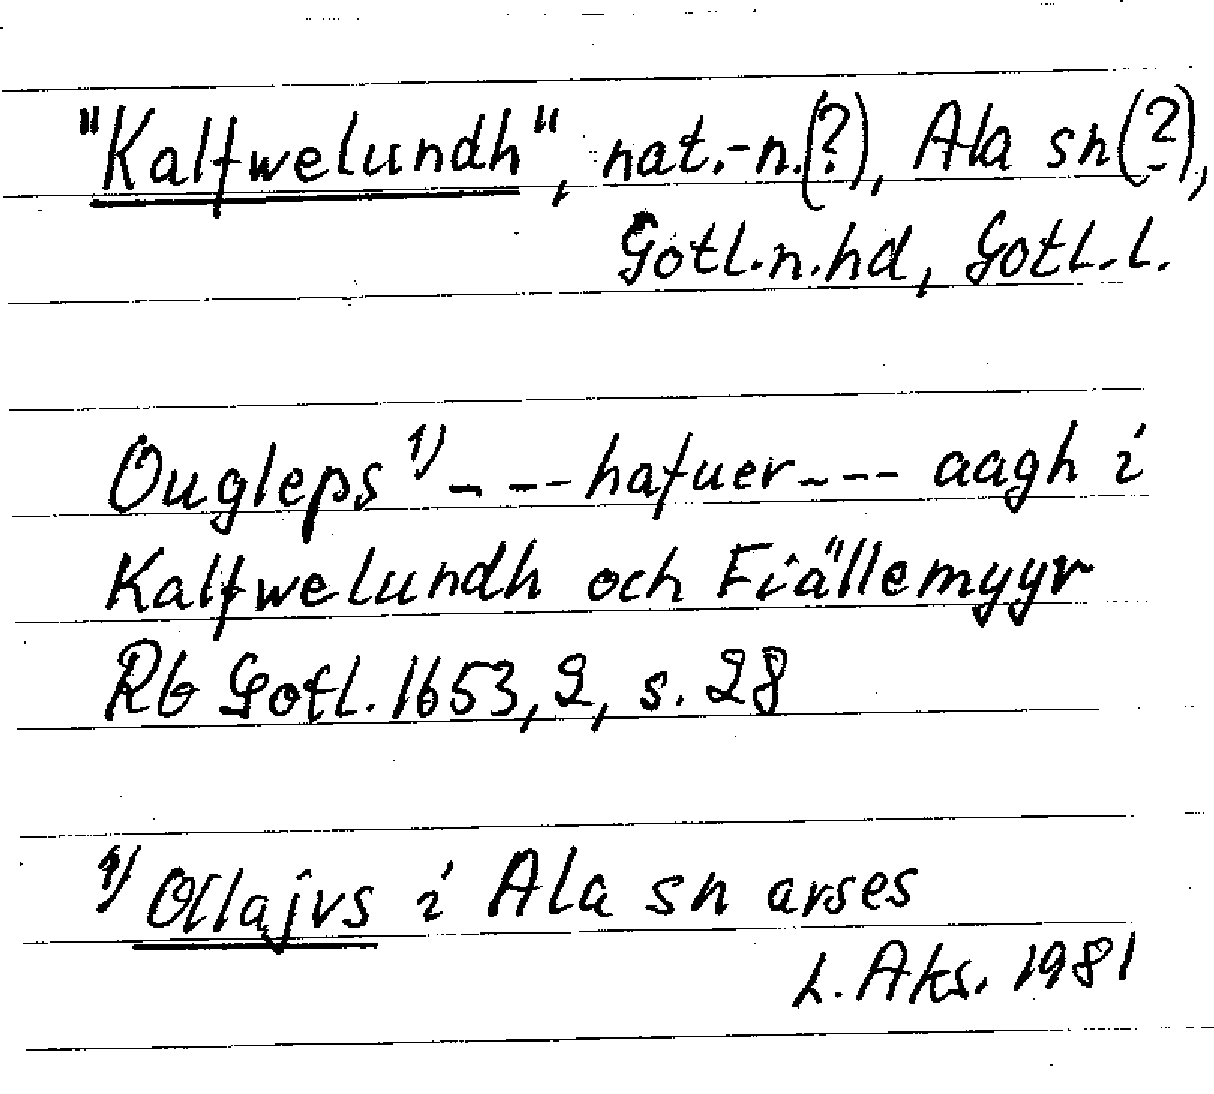 "Kalfwelundh", nat.-n.(?), Ala sn(?),
Gotl.n.hd, Gotl.l.
Ougleps 1) - - - hafuer - - - aagh i
Kalfwelundh och Fiällemyyr
Rb Gotl. 1653, 2, s. 28
1) Ollajvs i Ala sn avses
L. Aks. 1981